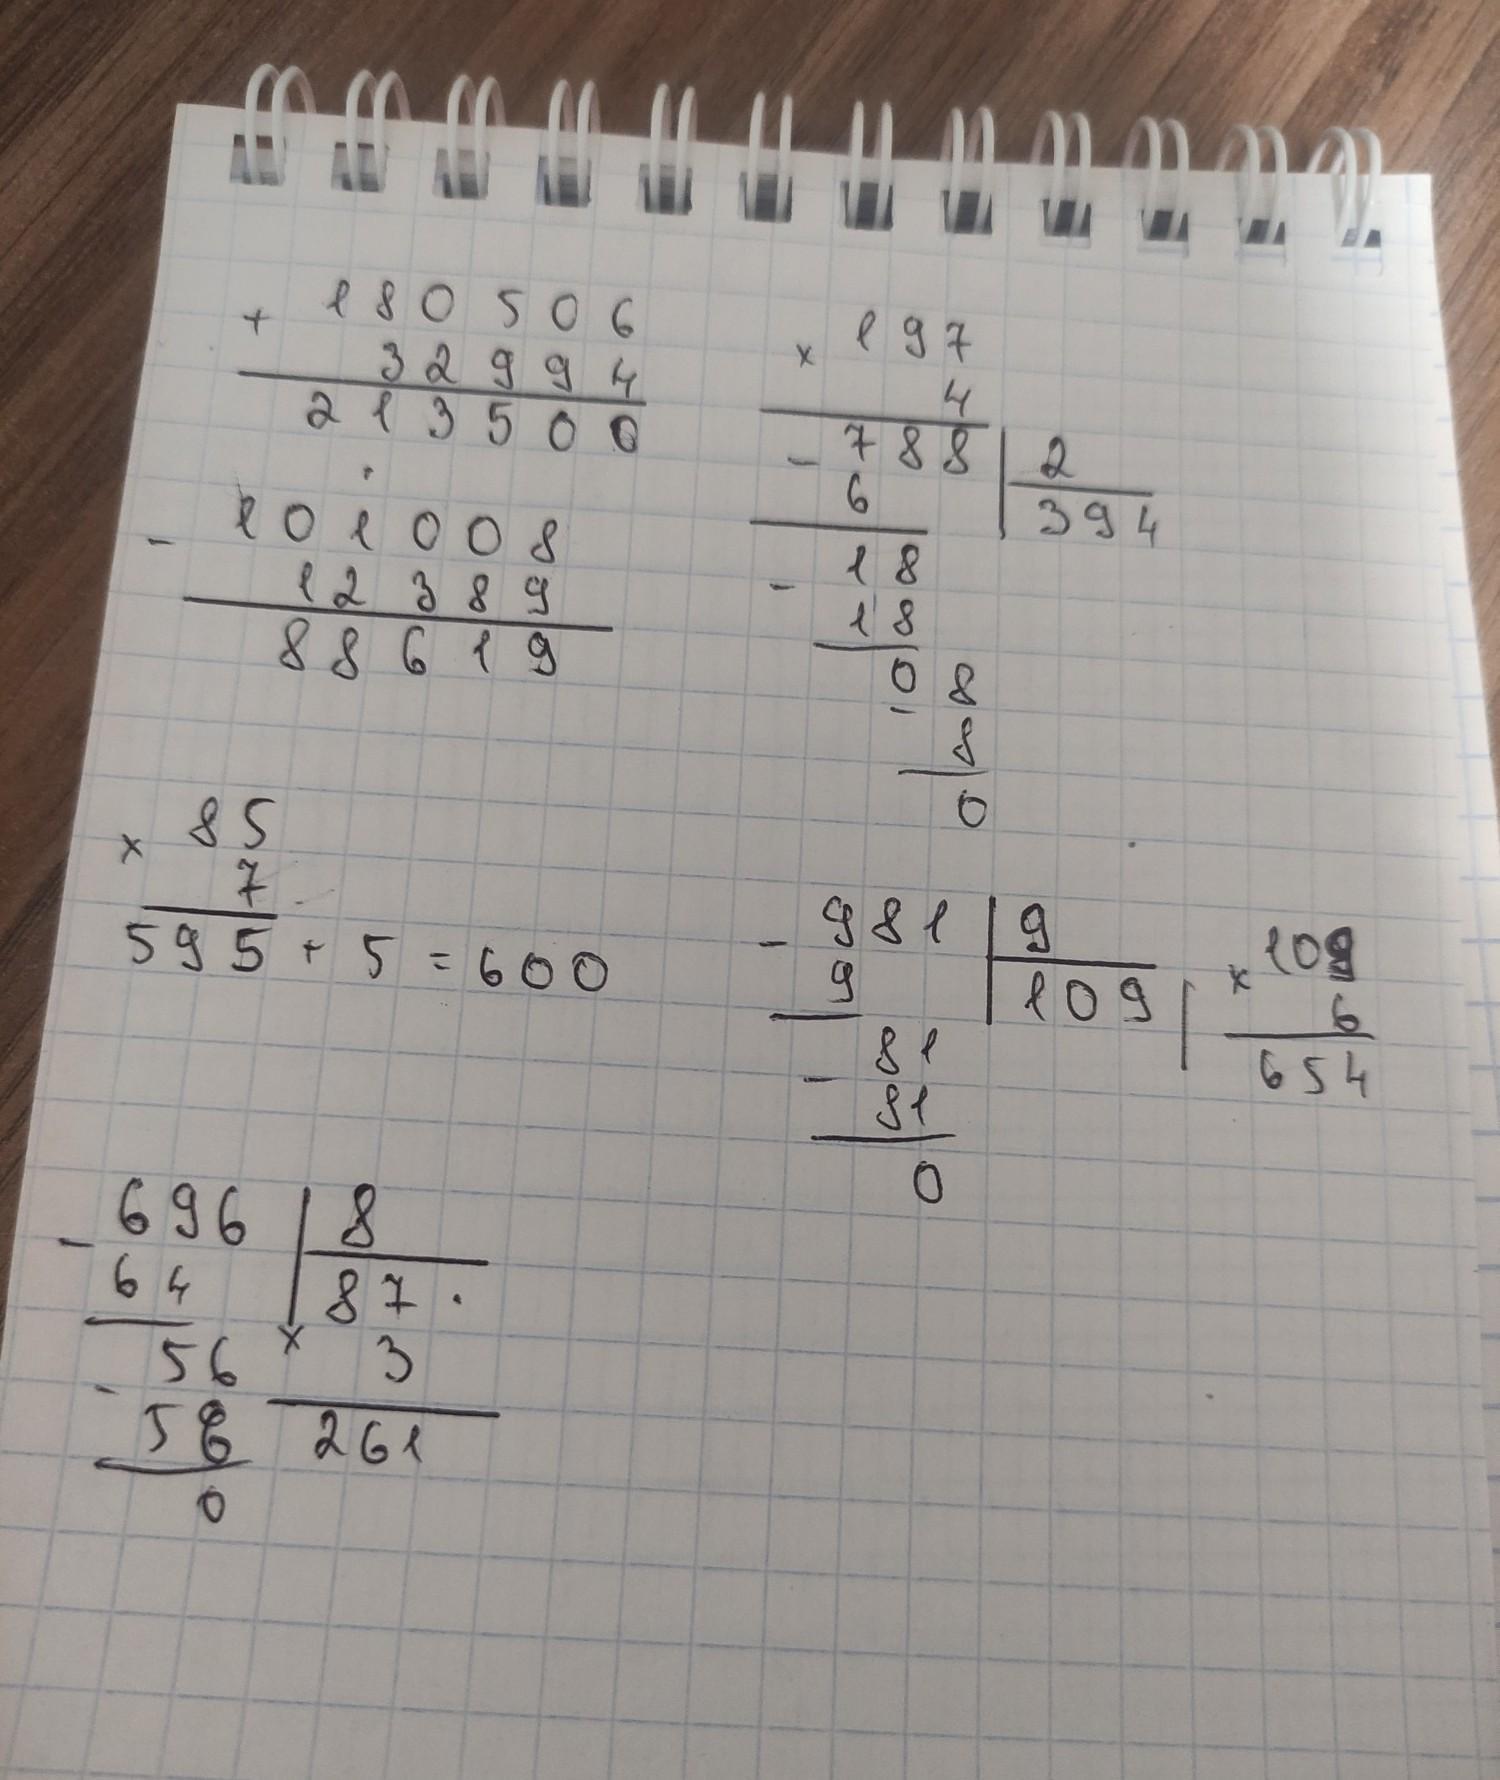 + 180506
32994
213500
- 101008
12389
88619
× 197
4
- 788 | 2
6 394
- 18
18
08
- 8
0
× 85
7
595 + 5 = 600
- 981 | 9
9 109
- 81
81
0
× 109
6
654
- 696 | 8
64 87 .
- 56 × 3
56 261
0